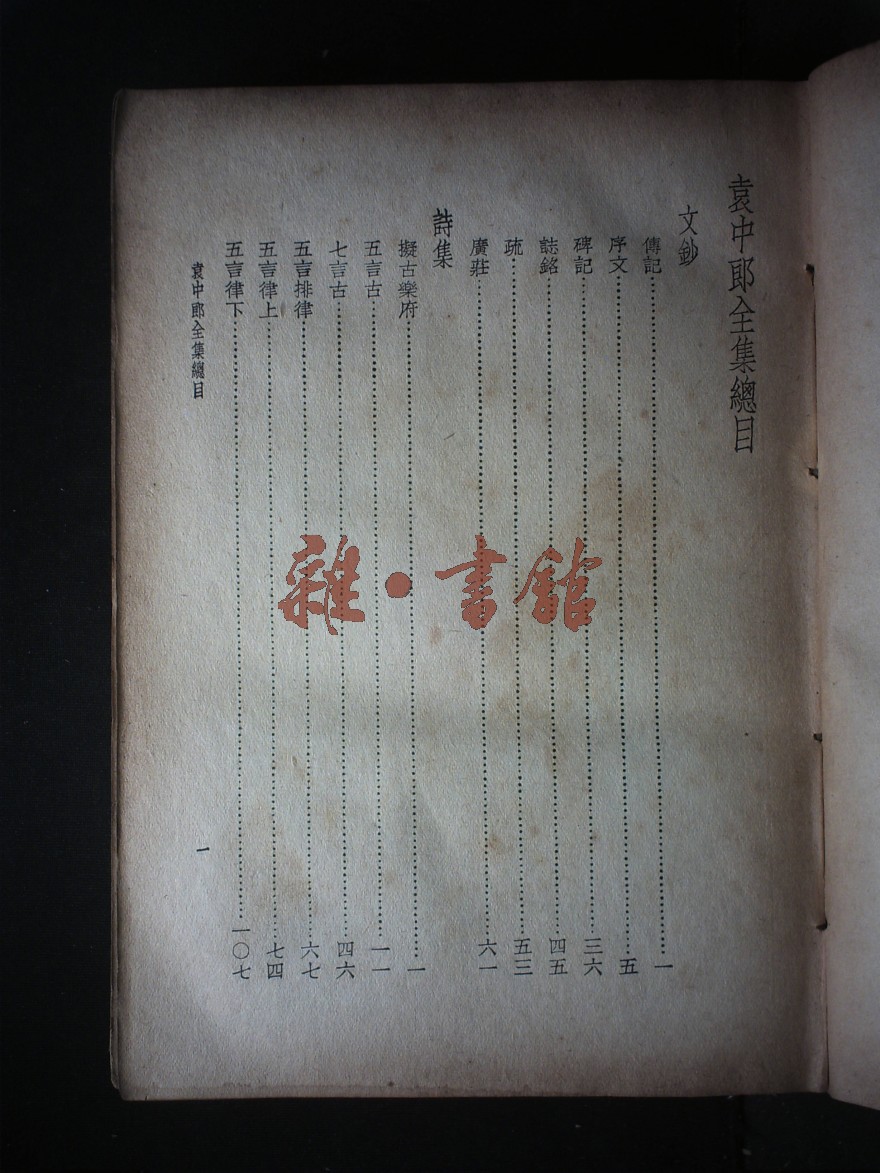 袁中郎全集總目
文鈔
傳記………一
序文………五
碑記………三六
誌銘………四五
疏………五三
廣莊………六一
詩集
擬古樂府………一
五言古………一一
七言古………四六
五言排律………六七
五言律上………七四
五言律下………一〇七
袁中郎全集總目
一
雜·書館